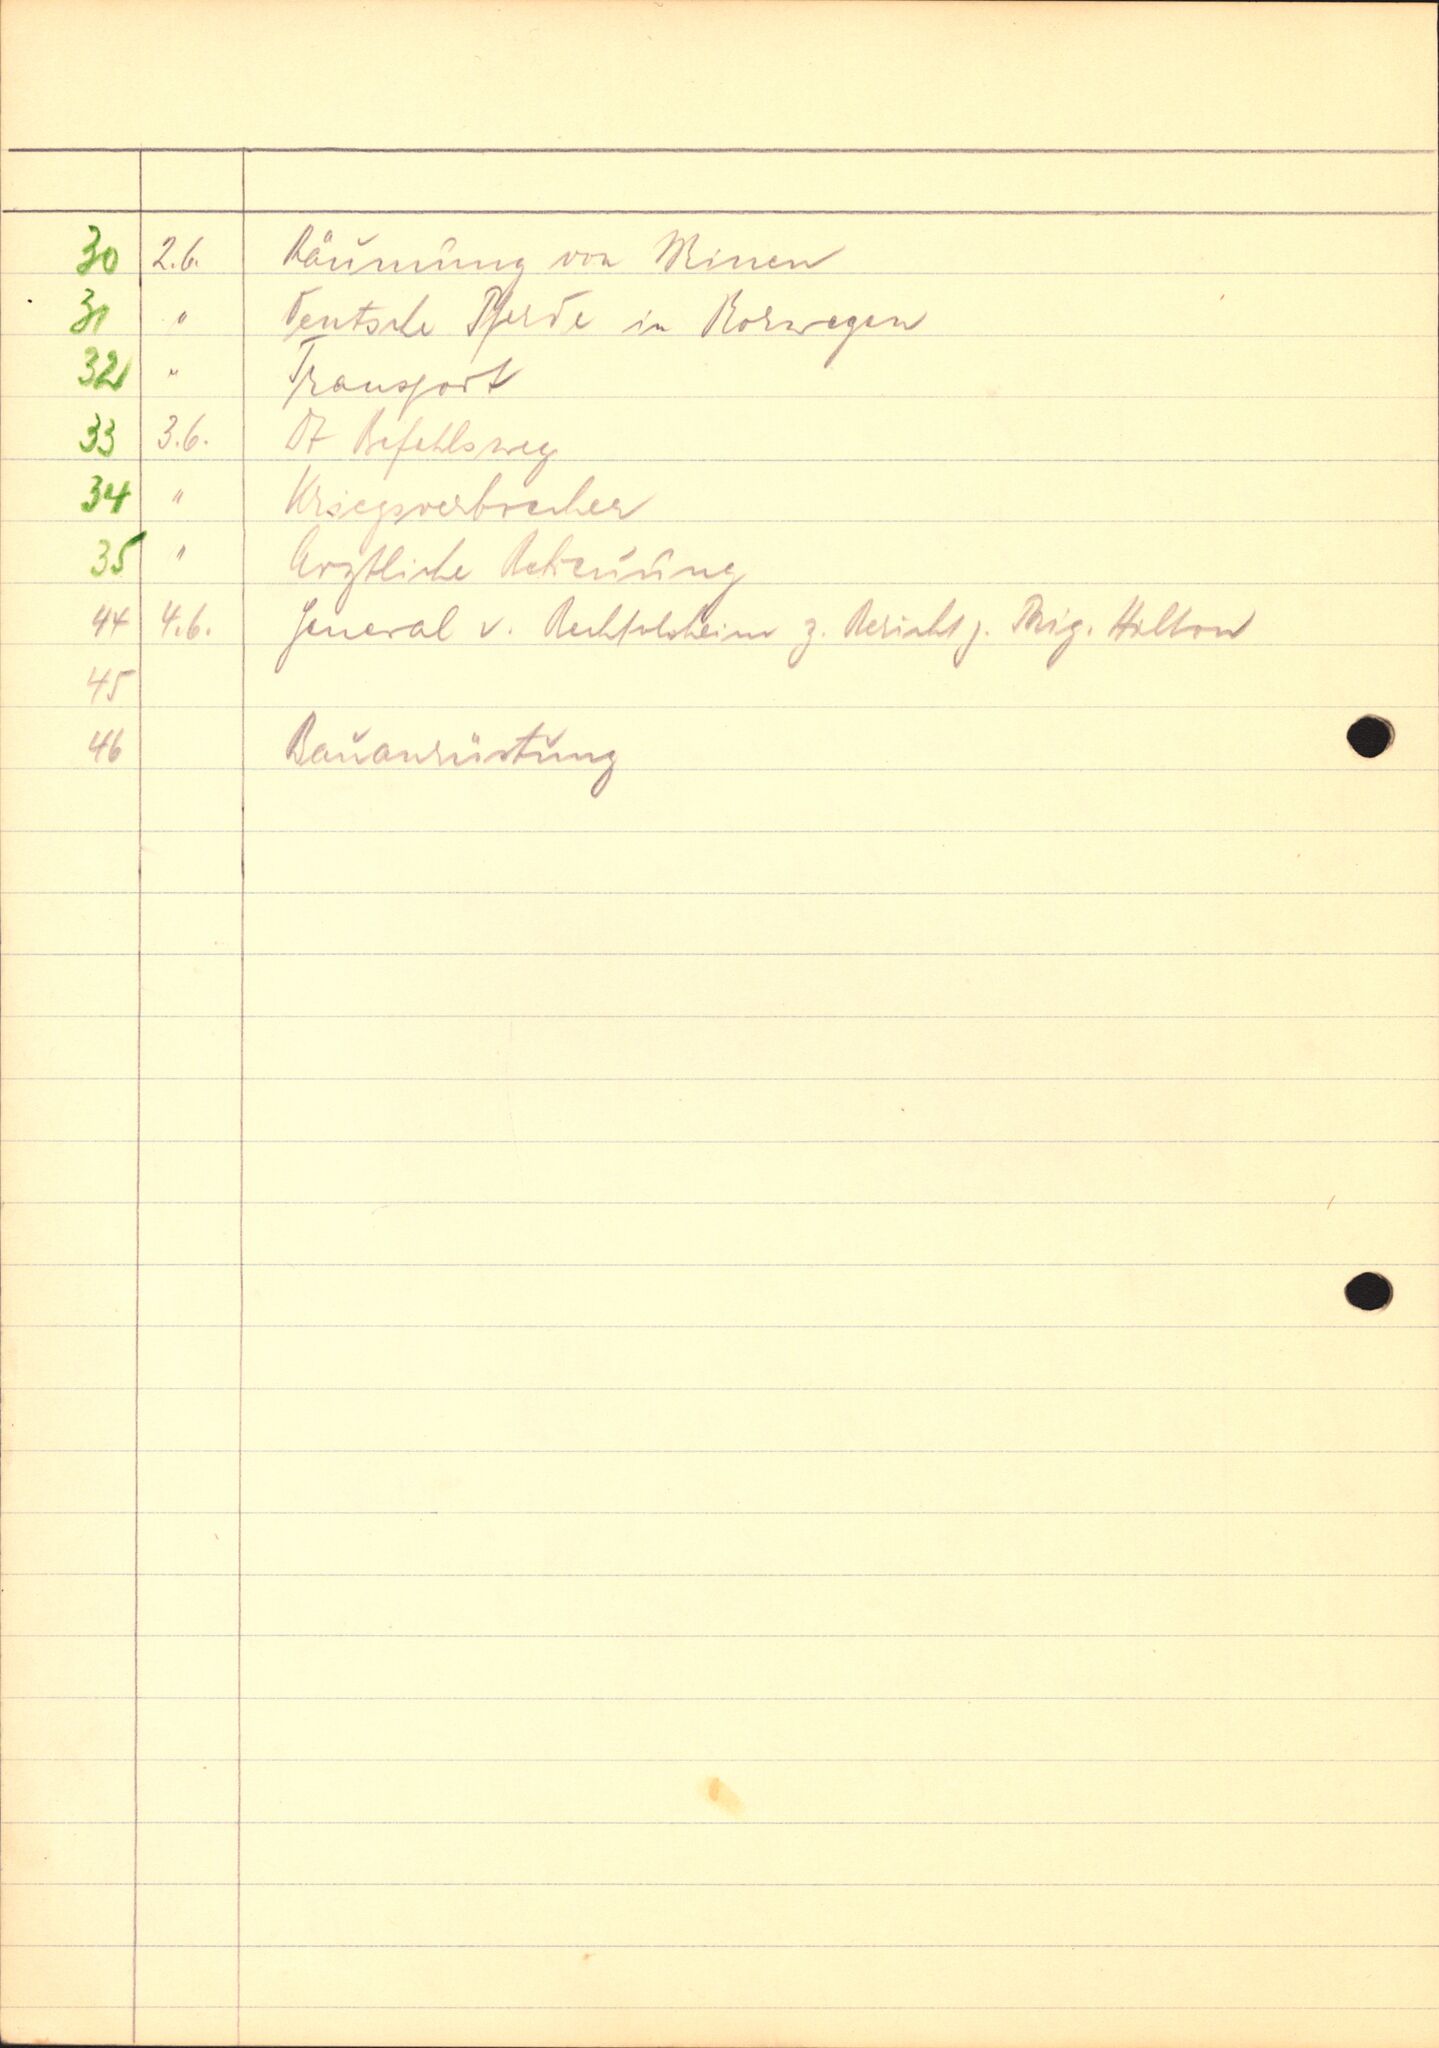 30 2.6. Räumung von Minen
31 " Deutsche Pferde in Norwegen
32 " Transport
33 3.6. Befehlsweg
34 " Kriegsverbrecher
35 " Ärztliche Betreuung
44 4.6. General v. z. Bericht z. Brig. Hilton
45
46 Bauausrüstung